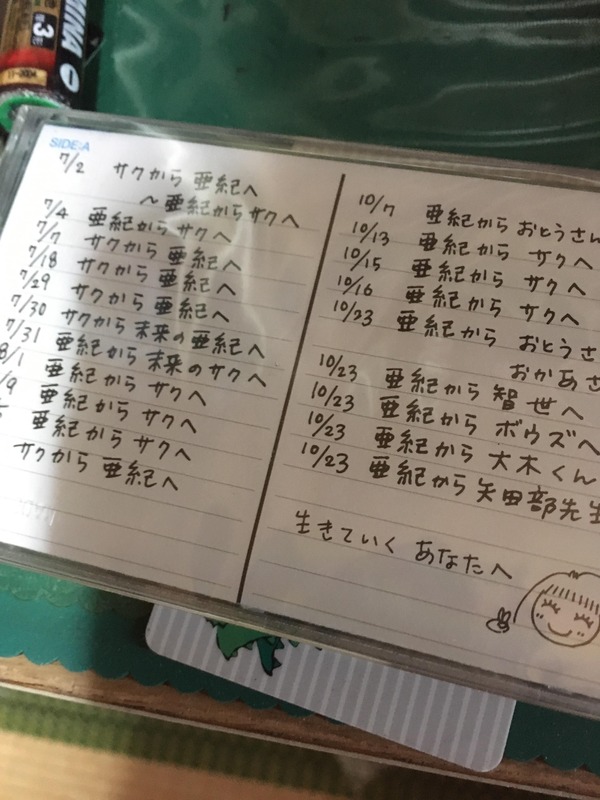 MINA
単3形
11-2004
SIDE:A
7/2 サクから 亜紀へ
〜亜紀からサクへ
7/4 亜紀から サクへ
7/7 サクから 亜紀へ
7/18 サクから 亜紀へ
7/29 サクから 亜紀へ
7/30 サクから 未来の 亜紀へ
7/31 亜紀から 未来の サクへ
8/1 亜紀から サクへ
/9 亜紀から サクへ
亜紀から サクへ
サクから 亜紀へ
10/7 亜紀から おとうさん
10/13 亜紀から サクへ
10/15 亜紀から サクへ
10/16 亜紀から サクへ
10/23 亜紀から おとうさ
おかあさ
10/23 亜紀から 智世へ
10/23 亜紀から ボウズへ
10/23 亜紀から 大木くん
10/23 亜紀から 矢田部先生
生きていく あなたへ